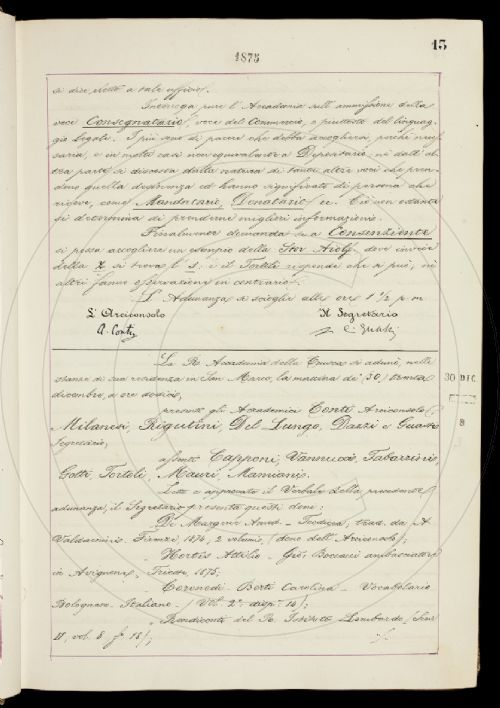 15
1875
si dice eletto a tale ufficio.
Interroga pure l'Accademia sull'ammissione della
voce Consegnatario, voce del Commercio, e piuttosto del linguag-
gio legale. I più sono di parere che debba accogliersi, poichè neces-
saria, e in molti casi non equivalente a Depositario: nè dall'al-
tra parte si discosta dalla natura di tante altre voci che pren-
dono quella desinenza ed hanno significato di persona che
riceve, come Mandatario, Donatario ec. Ciò non ostante
si determina di prenderne migliori informazioni.
Finalmente domanda se a Consenziente
si possa accogliere un esempio della Stor. Aiolf. dove invece
della z si trova l's; e il Tortoli risponde che si può, nè
altri fanno osservazione in contrario.
L'Adunanza si scioglie alle ore 1 1/2 p. m.
L'Arciconsolo Il Segretario
A. Conti C. Guasti
La R. Accademia della Crusca si adunò, nelle
stanze di sua residenza in San Marco, la mattina de' 30 trenta
dicembre, a ore dodici,
30 DIC.
presenti gli Accademici Conti Arciconsolo,
Milanesi, Rigutini, Del Lungo, Dazzi e Guasti
Segretario,
8
assenti Capponi, Vannucci, Tabarrini,
Gotti, Tortoli, Mauri, Mamiani.
Letto e approvato il Verbale della precedente
adunanza, il Segretario presenta questi doni:
Di Margerie Amed. - Teodicea, trad. da A.
Valdarnini. Firenze, 1874, 2 volumi, (dono dell'Arciconsolo);
Hortis Attilio - Giov. Boccacci ambasciatore
in Avignone, Trieste, 1875;
Coronedi-Berti Carolina - Vocabolario
Bolognese-Italiano. (Vol. 2º. disp. 14);
Rendiconti del R. Istituto Lombardo (Serie
II, vol. 8, f. 18);